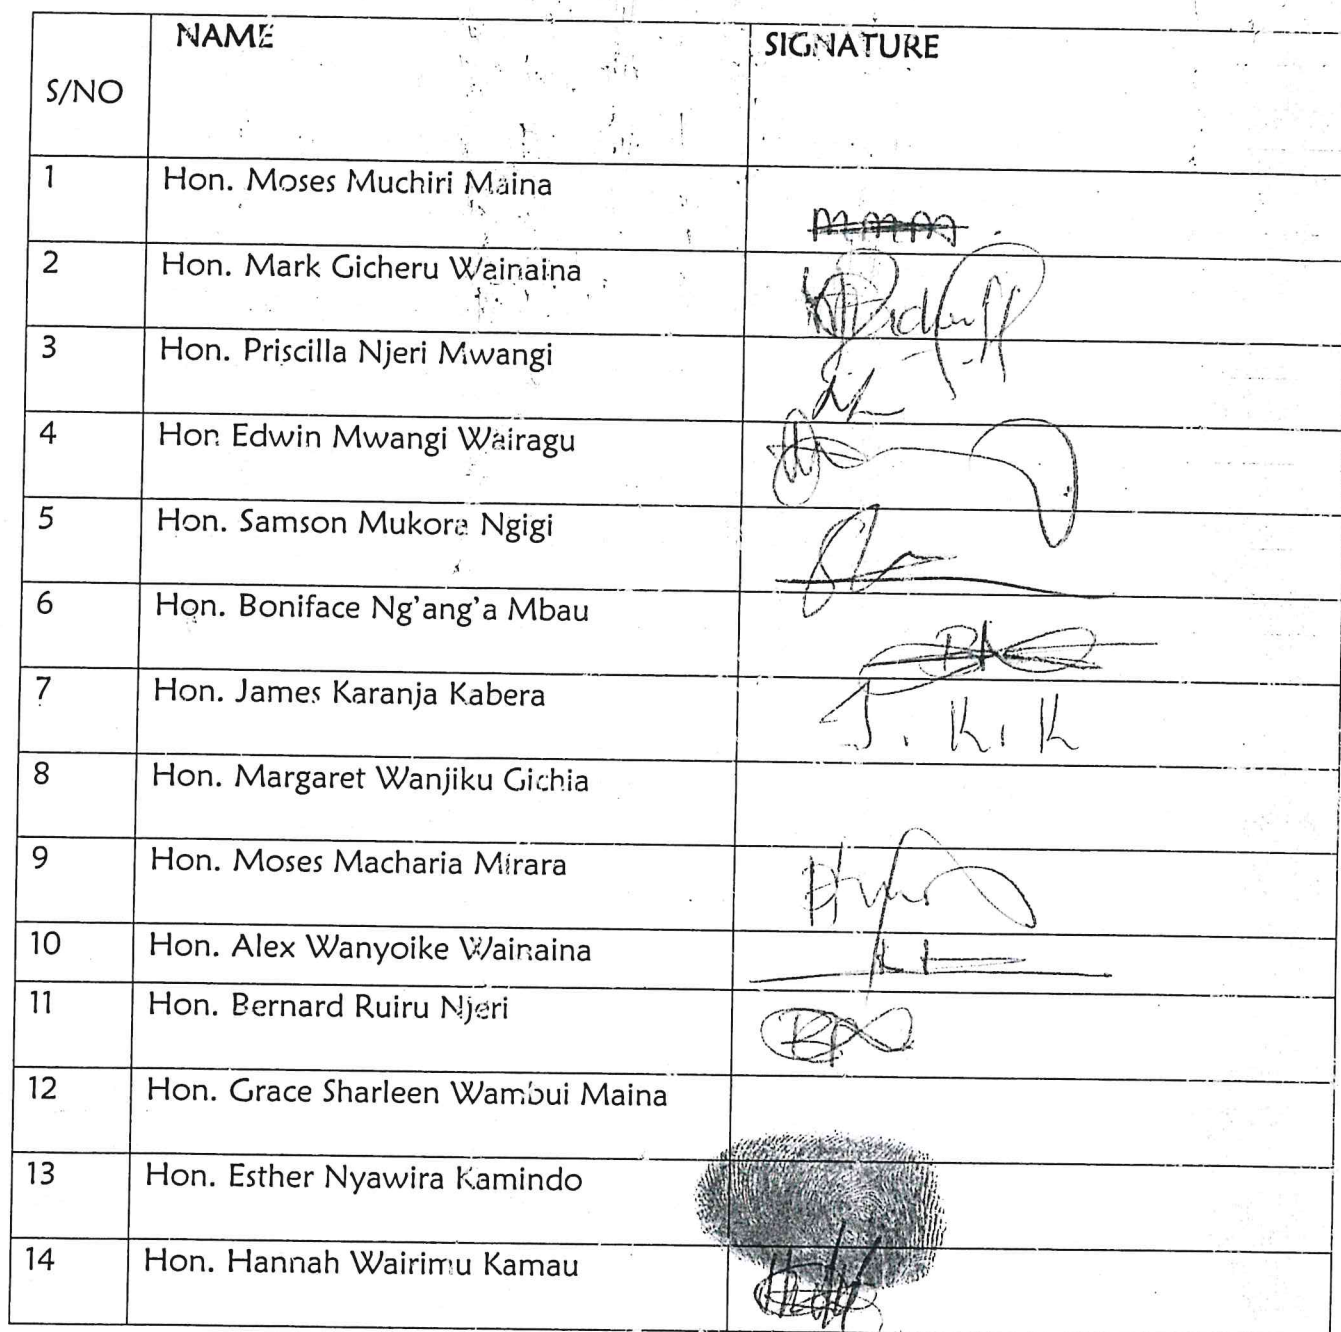 NAME SIGNATURE
S/NO
1 Hon. Moses Muchiri Maina
m.m.m
2 Hon. Mark Gicheru Wainaina
3 Hon. Priscilla Njeri Mwangi
4 Hon Edwin Mwangi Wairagu
5 Hon. Samson Mukora Ngigi
6 Hon. Boniface Ng'ang'a Mbau
7 Hon. James Karanja Kabera
J. K. K
8 Hon. Margaret Wanjiku Gichia
9 Hon. Moses Macharia Mirara
10 Hon. Alex Wanyoike Wainaina
11 Hon. Bernard Ruiru Njeri
12 Hon. Grace Sharleen Wambui Maina
13 Hon. Esther Nyawira Kamindo
14 Hon. Hannah Wairimu Kamau